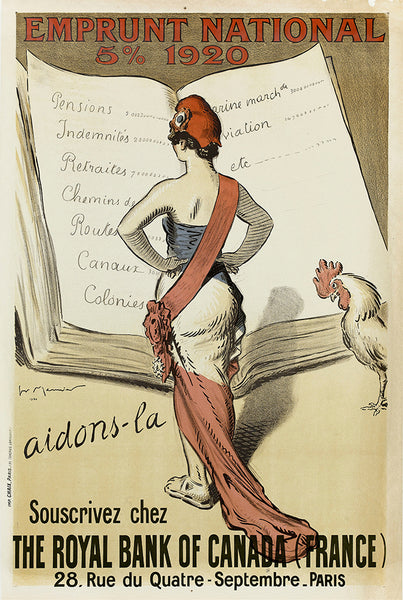 EMPRUNT NATIONAL
5% 1920
Pensions
Indemnités
Retraites
Chemins de
Routes
Canaux
Colonies
arine march de
viation
etc
aidons-la
Souscrivez chez
THE ROYAL BANK OF CANADA (FRANCE)
28, Rue du Quatre-Septembre_PARIS